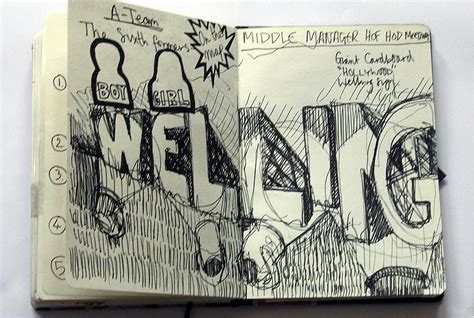 A-Team
The sixth formers
On the
map
BOY
GIRL
1
2
3
4
5
MIDDLE MANAGER HOF HOD Meeting
Giant Cardboard
"HOLLYWOOD"
Welling Sign
WELLING